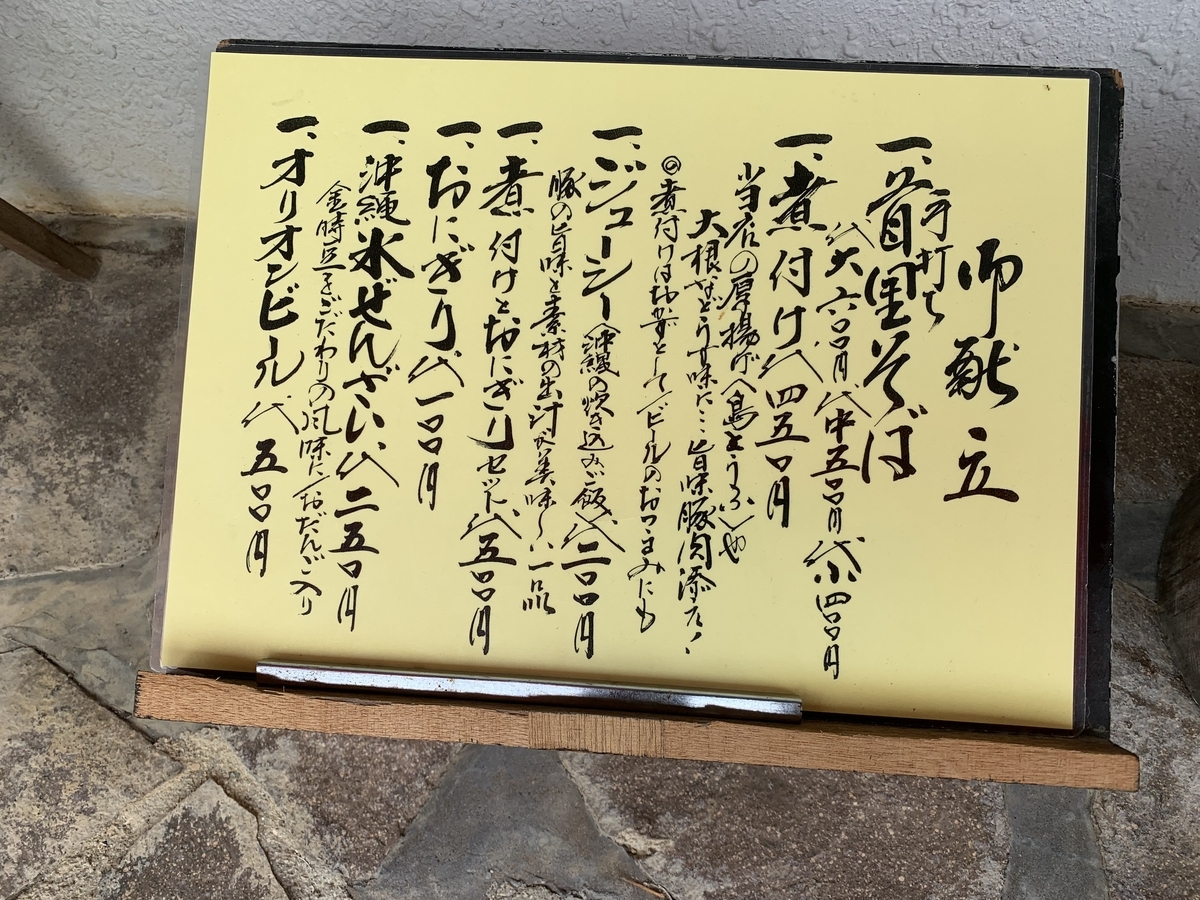 御献立
一、手打ち首里そば
代大六〇〇円 代中五〇〇円 代小四〇〇円
一、煮付け 代四五〇円
当店の厚揚げ(島とうふ)や
大根などう す味に… 旨味豚肉添え!
◎煮付けはおかずとしてビールのおつまみにも
一、ジューシー(沖縄の炊き込みご飯)代二〇〇円
豚の旨味と素材の出汁が美味〜い一品
一、煮付けとおにぎりセット 代五〇〇円
一、おにぎり 代一〇〇円
一、沖縄氷ぜんざい 代二五〇円
金時豆をこだわりの風味に/おだんご入り
一、オリオンビール 代五〇〇円